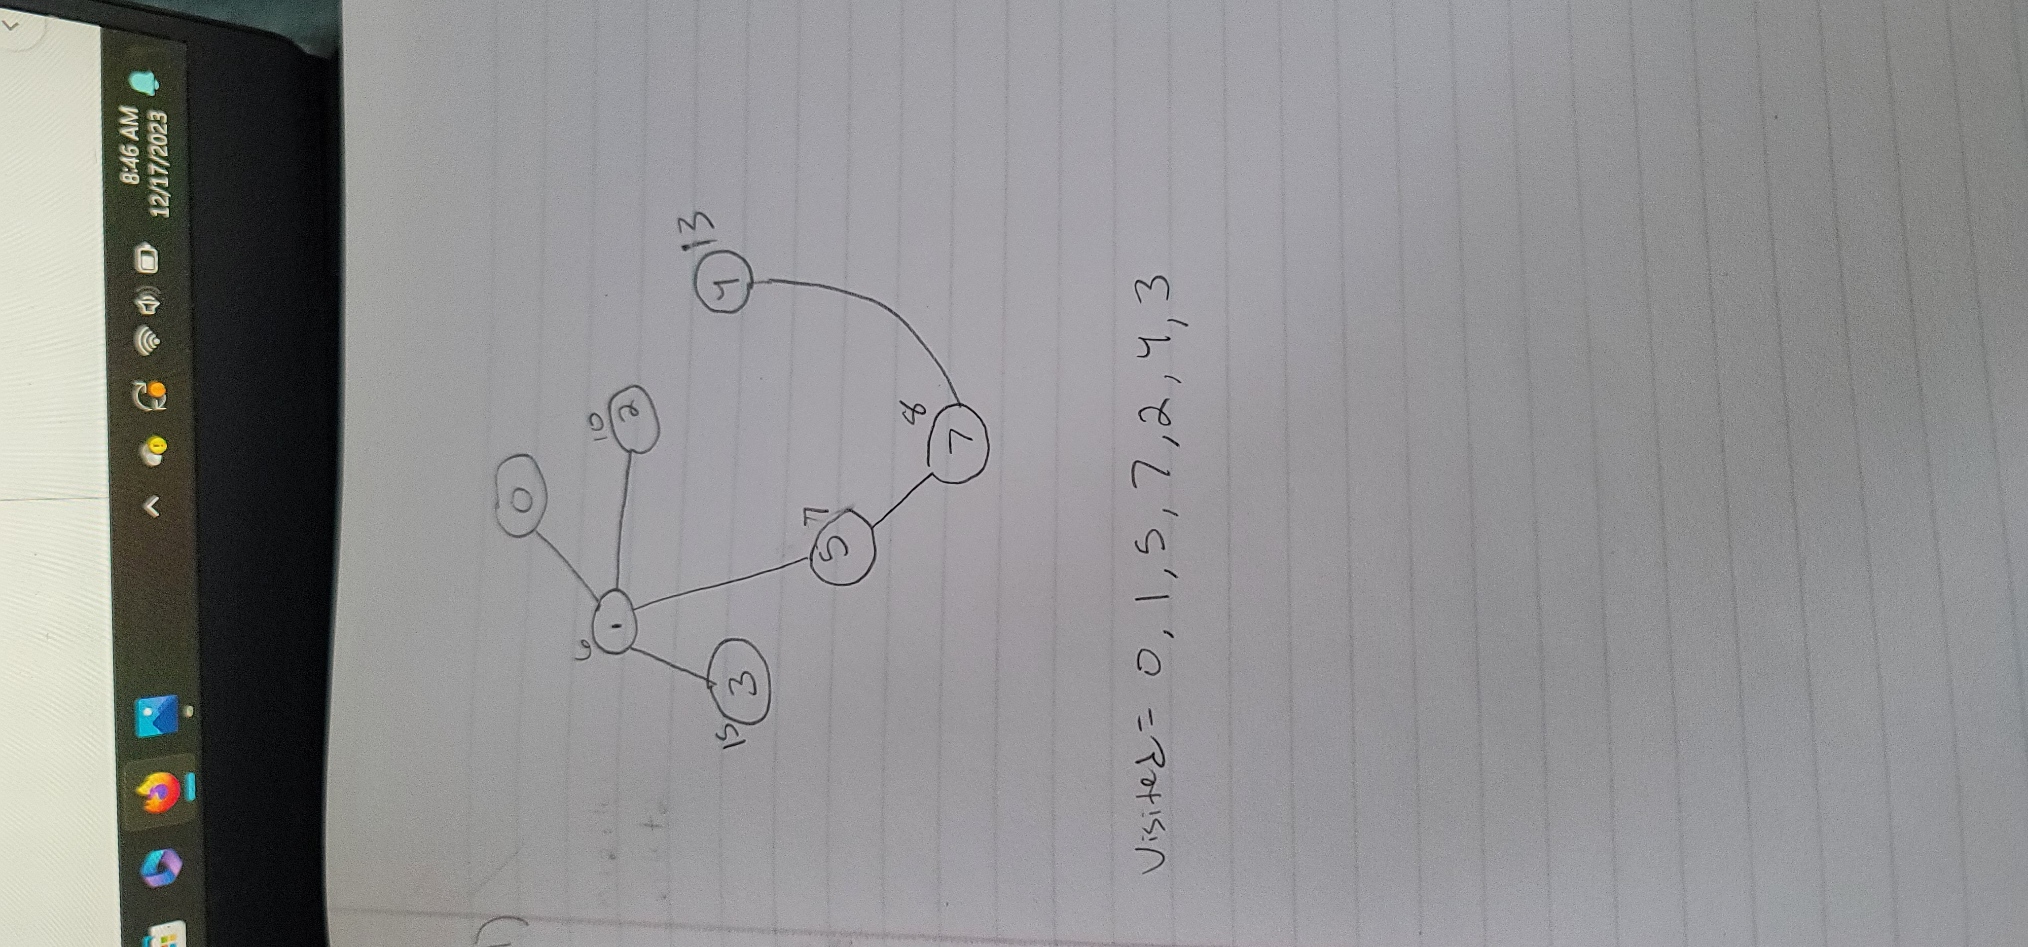 8:46 AM
12/17/2023
1)
0
6
1
10
2
13
4
15
3
7
5
8
7
Visited = 0, 1, 5, 7, 2, 4, 3